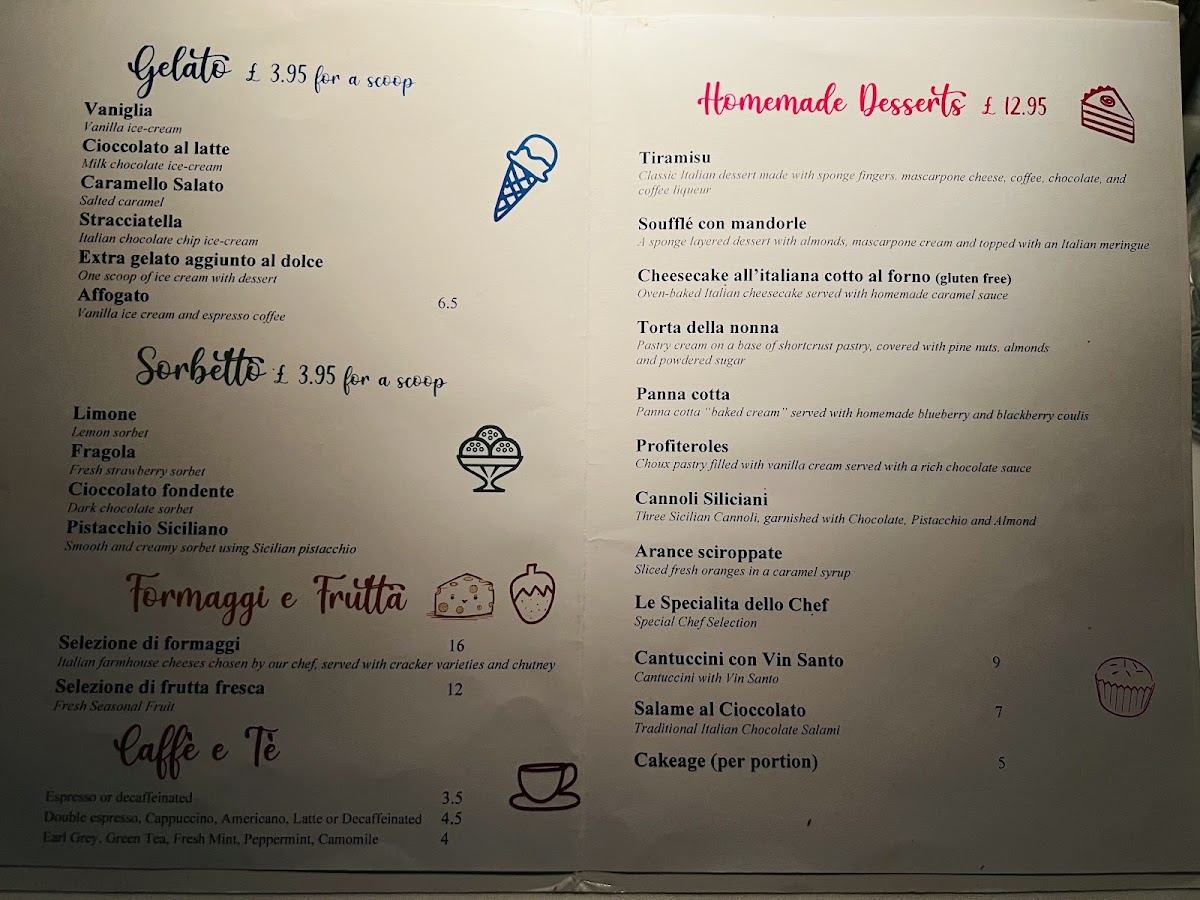 Gelato £ 3.95 for a scoop
Vaniglia
Vanilla ice-cream
Cioccolato al latte
Milk chocolate ice-cream
Caramello Salato
Salted caramel
Stracciatella
Italian chocolate chip ice-cream
Extra gelato aggiunto al dolce
One scoop of ice cream with dessert
Affogato 6.5
Vanilla ice cream and espresso coffee
Sorbetto £ 3.95 for a scoop
Limone
Lemon sorbet
Fragola
Fresh strawberry sorbet
Cioccolato fondente
Dark chocolate sorbet
Pistacchio Siciliano
Smooth and creamy sorbet using Sicilian pistacchio
Formaggi e Frutta
Selezione di formaggi 16
Italian farmhouse cheeses chosen by our chef, served with cracker varieties and chutney
Selezione di frutta fresca 12
Fresh Seasonal Fruit
Caffè e Tè
Espresso or decaffeinated 3.5
Double espresso, Cappuccino, Americano, Latte or Decaffeinated 4.5
Earl Grey, Green Tea, Fresh Mint, Peppermint, Camomile 4
Homemade Desserts £ 12.95
Tiramisu
Classic Italian dessert made with sponge fingers, mascarpone cheese, coffee, chocolate, and
coffee liqueur
Soufflé con mandorle
A sponge layered dessert with almonds, mascarpone cream and topped with an Italian meringue
Cheesecake all'italiana cotto al forno (gluten free)
Oven-baked Italian cheesecake served with homemade caramel sauce
Torta della nonna
Pastry cream on a base of shortcrust pastry, covered with pine nuts, almonds
and powdered sugar
Panna cotta
Panna cotta "baked cream" served with homemade blueberry and blackberry coulis
Profiteroles
Choux pastry filled with vanilla cream served with a rich chocolate sauce
Cannoli Siliciani
Three Sicilian Cannoli, garnished with Chocolate, Pistacchio and Almond
Arance sciroppate
Sliced fresh oranges in a caramel syrup
Le Specialita dello Chef
Special Chef Selection
Cantuccini con Vin Santo 9
Cantuccini with Vin Santo
Salame al Cioccolato 7
Traditional Italian Chocolate Salami
Cakeage (per portion) 5